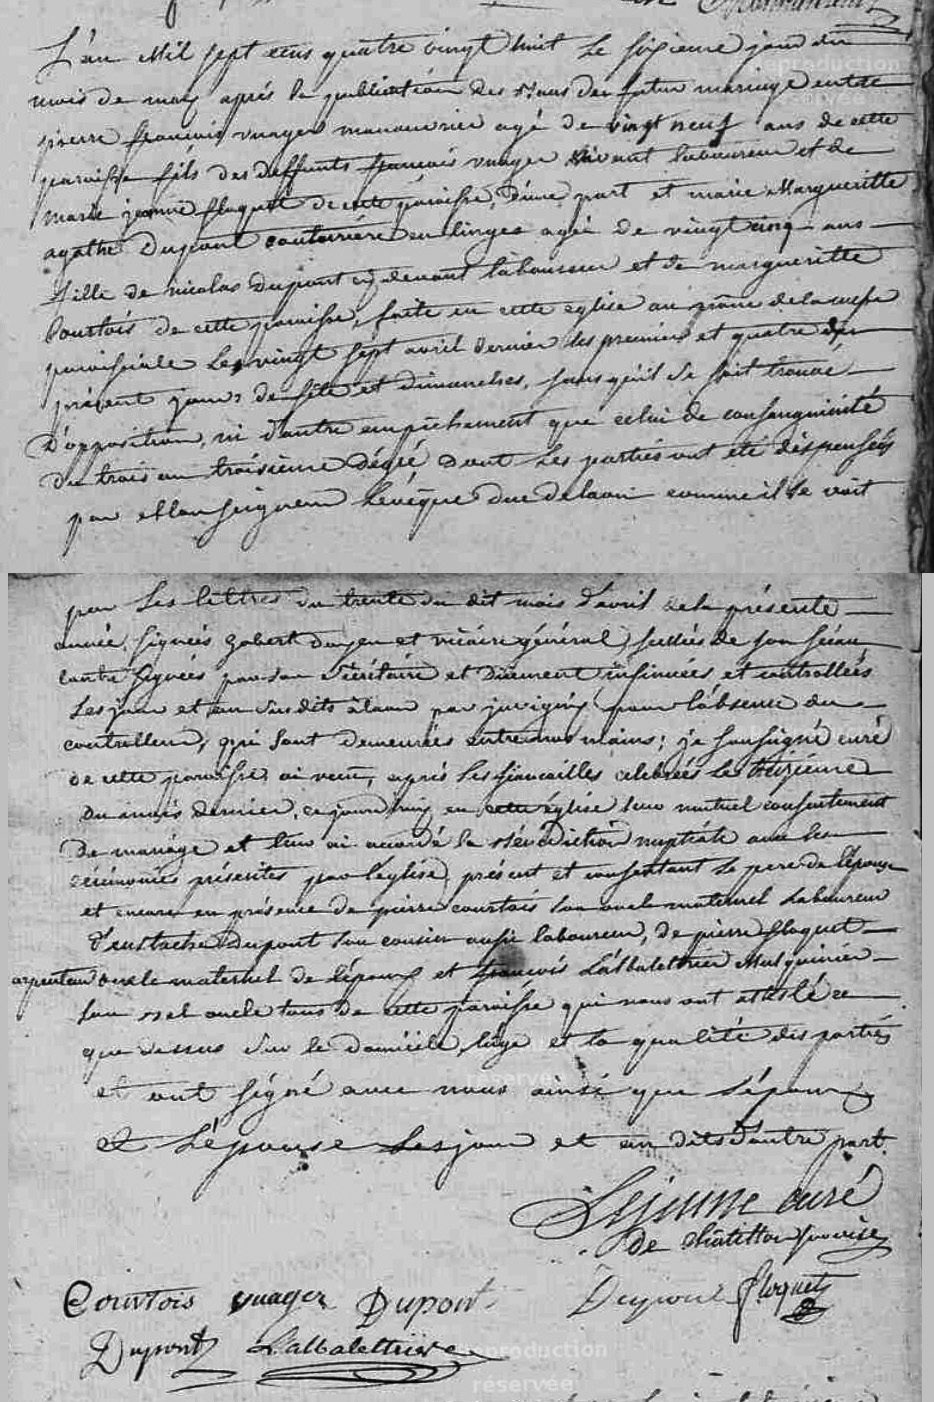 L'an Mil sept cens quatre vingt huit Le sixieme jour du
mois de may aprés la publication des Bans du futur mariage entre
pierre françois vuager manouvrier agé de vingt neuf ans de cette
paroisse fils des deffunts françois vuager vivant laboureur et de
marie jeanne floquet de cette paroisse, d'une part et marie Margueritte
agathe Dupont couturiére en linges agée de vingt cinq ans
fille de nicolas Dupont cy devant laboureur et de margueritte
Courtois de cette paroisse, faite en cette eglise au prône de la messe
paroissiale Les vingt sept avril dernier les premier et quatre du
présent jours de fête et dimanches, sans qu'il se soit trouvé
D'opposition, ni d'autre empêchement que celui de consanguinité
du trois au troisieme dégré dont Les parties ont été dispensées
par Monseigneur L'evêque duc de laon comme il se voit
par Les lettres du trente du dit mois d'avril de la présente
année, signées gobert doyen et vicaire général, scellées de son sceau
contre signées par son Sécrétaire et Düement insinuées et controllées
Les jour et an susdits à laon par juvigny pour l'absence du
controlleur, qui sont demeurées entre nos mains; je soussigné curé
de cette paroisse ai reçu, aprés les fiancailles celebrées Le
du mois dernier, ce jourd'huy en cette église leur mutuel consentement
De mariage et leur ai accordé la Bénédiction nuptiale avec les
cérémonies préscrites par l'eglise, présent et consentant Le pere de l'épouse
et encore en présence de pierre courtois son oncle maternel Laboureur
d'eustache Dupont son cousin aussi laboureur, de pierre floquet
arpenteur oncle maternel de l'époux et françois L'albalettrier Mulquinier
son bel oncle tous de cette paroisse qui nous ont attesté ce
que dessus sur le domicile, l'age et la qualité des parties
et ont signé avec nous ainsi que L'époux
et L'épouse Les jour et an dits d'autre part.
Lejeune curé
de chatillon
Courtois vuager Dupont Dupont floquet
Dupont Lalbalettriere
reproduction
réservée